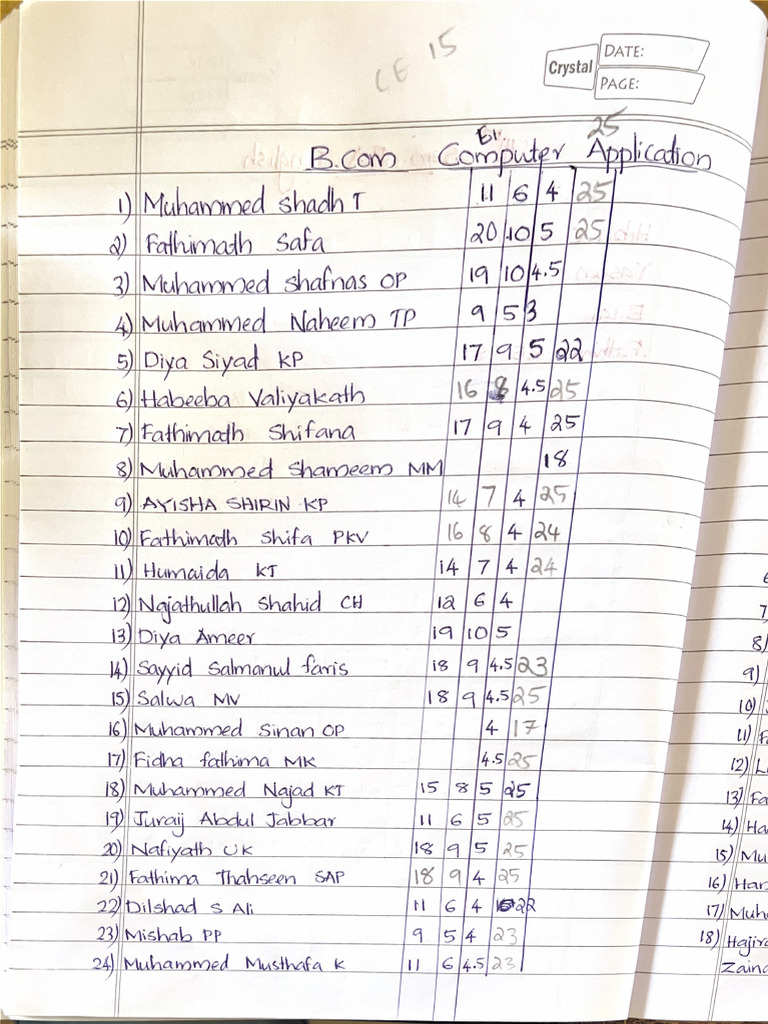 CE 15
Crystal
DATE:
PAGE:
25
B.Com Computer Application
1) Muhammed Shadh T 11 6 4 25
2) Fathimath Safa 20 10 5 25
3) Muhammed Shafnas OP 19 10 4.5
4) Muhammed Naheem TP 9 5 3
5) Diya Siyad KP 17 9 5 22
6) Habeeba Valiyakath 16 8 4.5 25
7) Fathimath Shifana 17 9 4 25
8) Muhammed Shameem MM 18
9) AYISHA SHIRIN KP 14 7 4 25
10) Fathimath Shifa PKV 16 8 4 24
11) Humaida KT 14 7 4 24
12) Najathullah Shahid CH 12 6 4
13) Diya Ameer 19 10 5
14) Sayyid Salmanul faris 18 9 4.5 23
15) Salwa MV 18 9 4.5 25
16) Muhammed Sinan OP 4 17
17) Fidha fathima MK 4.5 25
18) Muhammed Najad KT 15 8 5 25
19) Juraij Abdul Jabbar 11 6 5 25
20) Nafiyath UK 18 9 5 25
21) Fathima Thahseen SAP 18 9 4 25
22) Dilshad S Ali 11 6 4 22
23) Mishab PP 9 5 4 23
24) Muhammed Musthafa K 11 6 4.5 23
7)
8)
9)
10)
11) F
12) L
13) Fa
14) Ha
15) Mu
16) Har
17) Muh
18) Hajira
Zaina